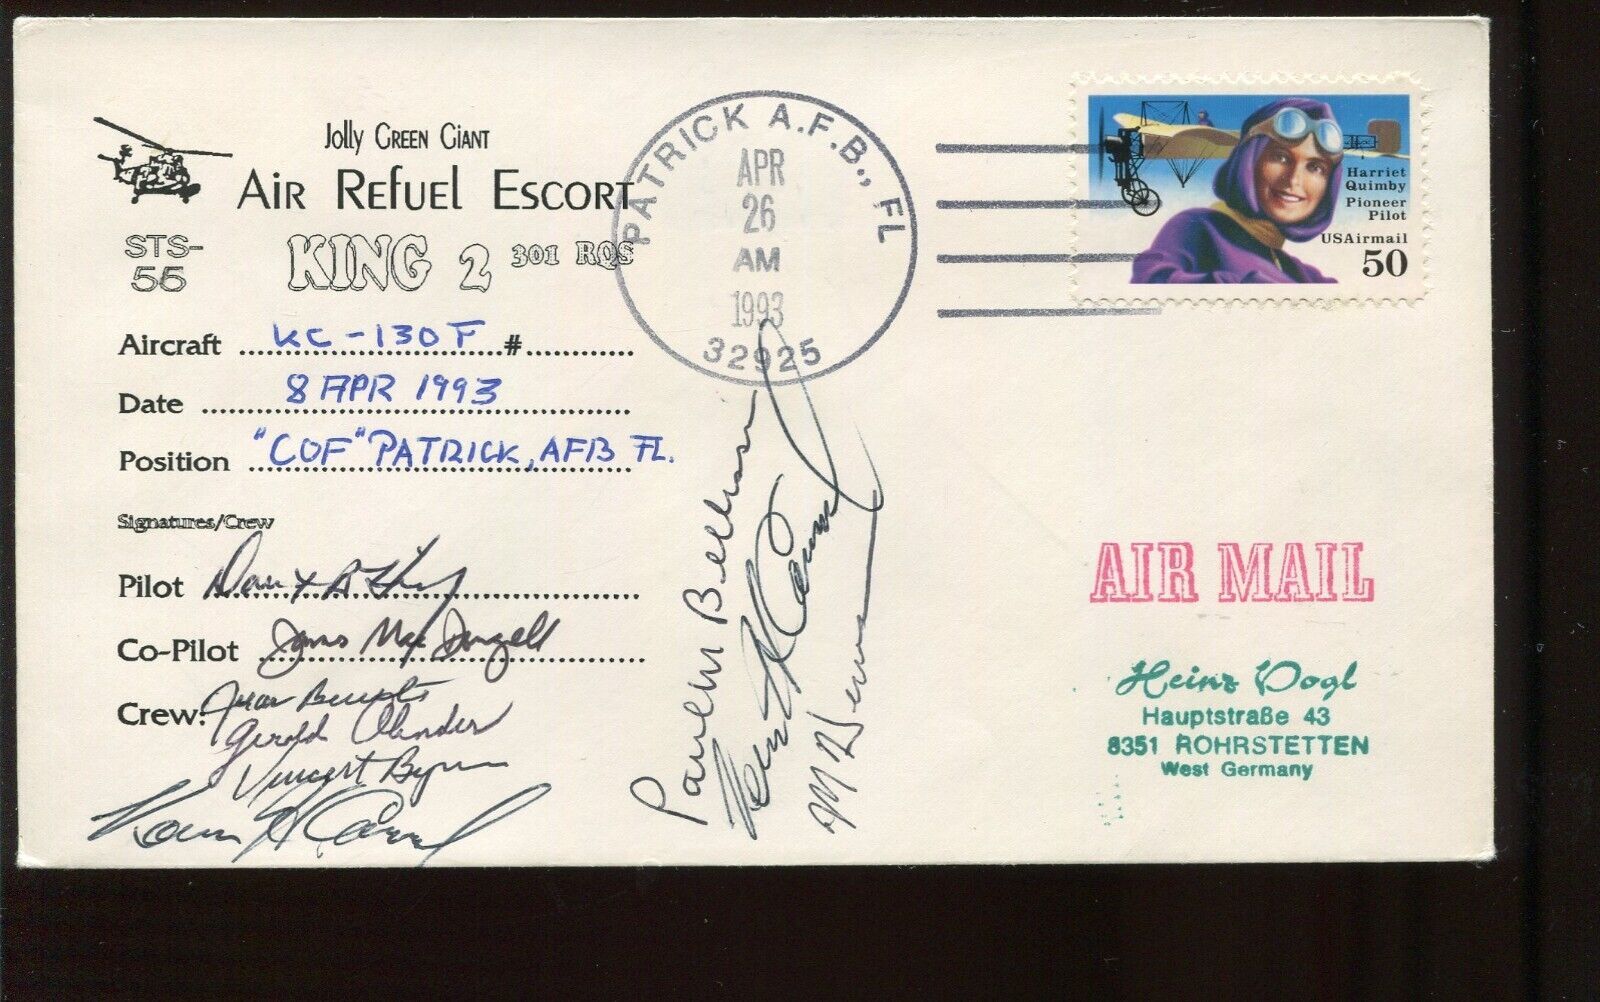 Jolly Green Giant
Air Refuel Escort
STS-
55
KING 2 301 RQS
Aircraft KC-130F #
Date 8 APR 1993
Position "COF" PATRICK, AFB FL.
Signatures/Crew
Pilot
Co-Pilot James MacDougall
Crew: Juan
Gerald Olender
Vincent Byrne
PATRICK A.F.B., FL
APR
26
AM
1993
32925
Harriet
Quimby
Pioneer
Pilot
USAirmail
50
AIR MAIL
Heinz Vogl
Hauptstraße 43
8351 ROHRSTETTEN
West Germany